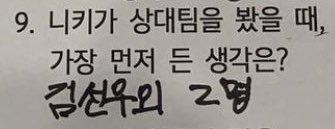 9. 니키가 상대팀을 봤을 때,
가장 먼저 든 생각은?
김선우외 2명